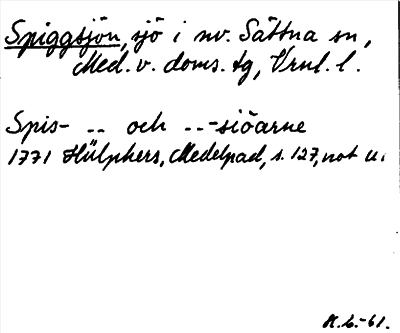 Spiggsjön, sjö i nv. Sättna sn,
Med. v. doms. tg, Vrnl. l.
Spis- .. och ..-siöarne
1771 Hülphers, Medelpad, s. 127, not u.
H. L. -61.